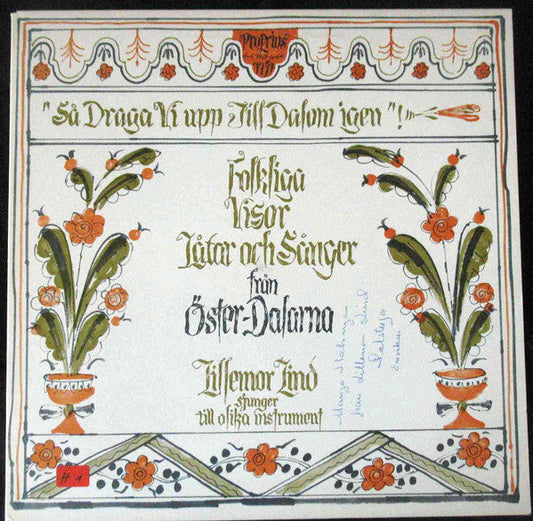 Proprius
"Så Draga Vi upp Till Dalom igen"!
Folkliga
Visor
Låtar och Sånger
från
Öster-Dalarna
Lillemor Lind
sjunger
till olika instrument
från Lillemor Lind
# 1